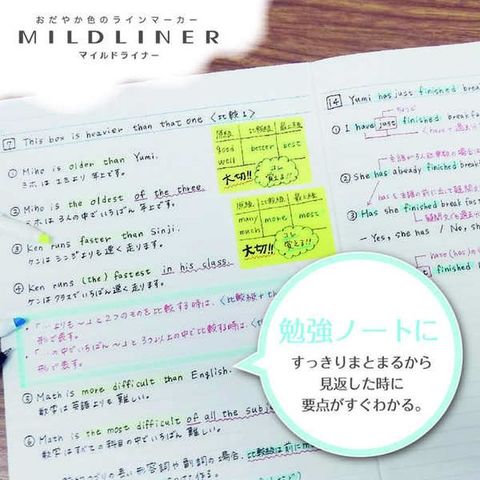 おだやか色のラインマーカー
MILDLINER
マイルドライナー
7 This box is heavier than that one 〈比較1〉
① Miho is older than Yumi.
ミホはユミより年上です。
② Miho is the oldest of the three.
ミホは3人の中でいちばん年上です。
③ Ken runs faster than Sinji.
ケンはシンジよりも速く走ります。
④ Ken runs (the) fastest in his class.
ケンはクラスでいちばん速く走ります。
原級 比較級 最上級
good
well better best
大切!! コレ覚える!!
原級 比較級 最上級
many
much more most
大切!! コレ覚える!!
・「…よりも〜」と2つのものを比較する時は、〈比較級+th
形で表す。
・「…の中でいちばん〜」と3つ以上の中で比較する時は、
形で表す。
⑤ Math is more difficult than English.
数学は英語よりも難しい。
⑥ Math is the most difficult of all the subje
数学はすべての科目の中でいちばん難しい。
の長い形容詞や副詞の場合、比較級は前にm
14 Yumi has just finished break
① I have just finished breakfa
② She has already finished break
③ Has she finished breakf
- Yes, she has / No, sh
finished
勉強ノートに
すっきりまとまるから
見返した時に
要点がすぐわかる。